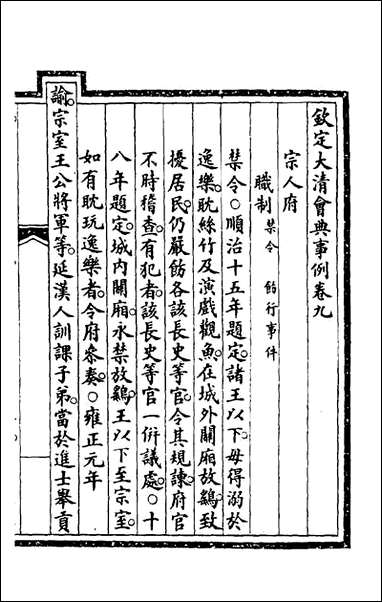 欽定大清會典事例卷九
宗人府
職制 禁令 飭行事件
禁令○順治十五年題定諸王以下毋得溺於
逸樂耽絲竹及演戲觀魚在城外關廂放鷂致
擾居民仍嚴飭各該長史等官令其規諫府官
不時稽查有犯者該長史等官一併議處○十
八年題定城内關廂永禁放鷂王以下至宗室
如有耽玩逸樂者令府叅奏○雍正元年
諭宗室王公將軍等延漢人訓課子弟當於進士舉貢